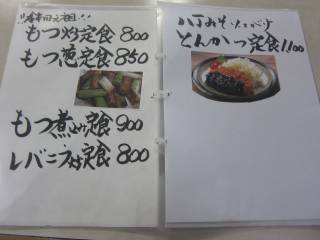 もつ炒定食 800
もつ葱定食 850
もつ煮込定食 900
レバニラ炒定食 800
八丁みそ
とんかつ定食 1,100